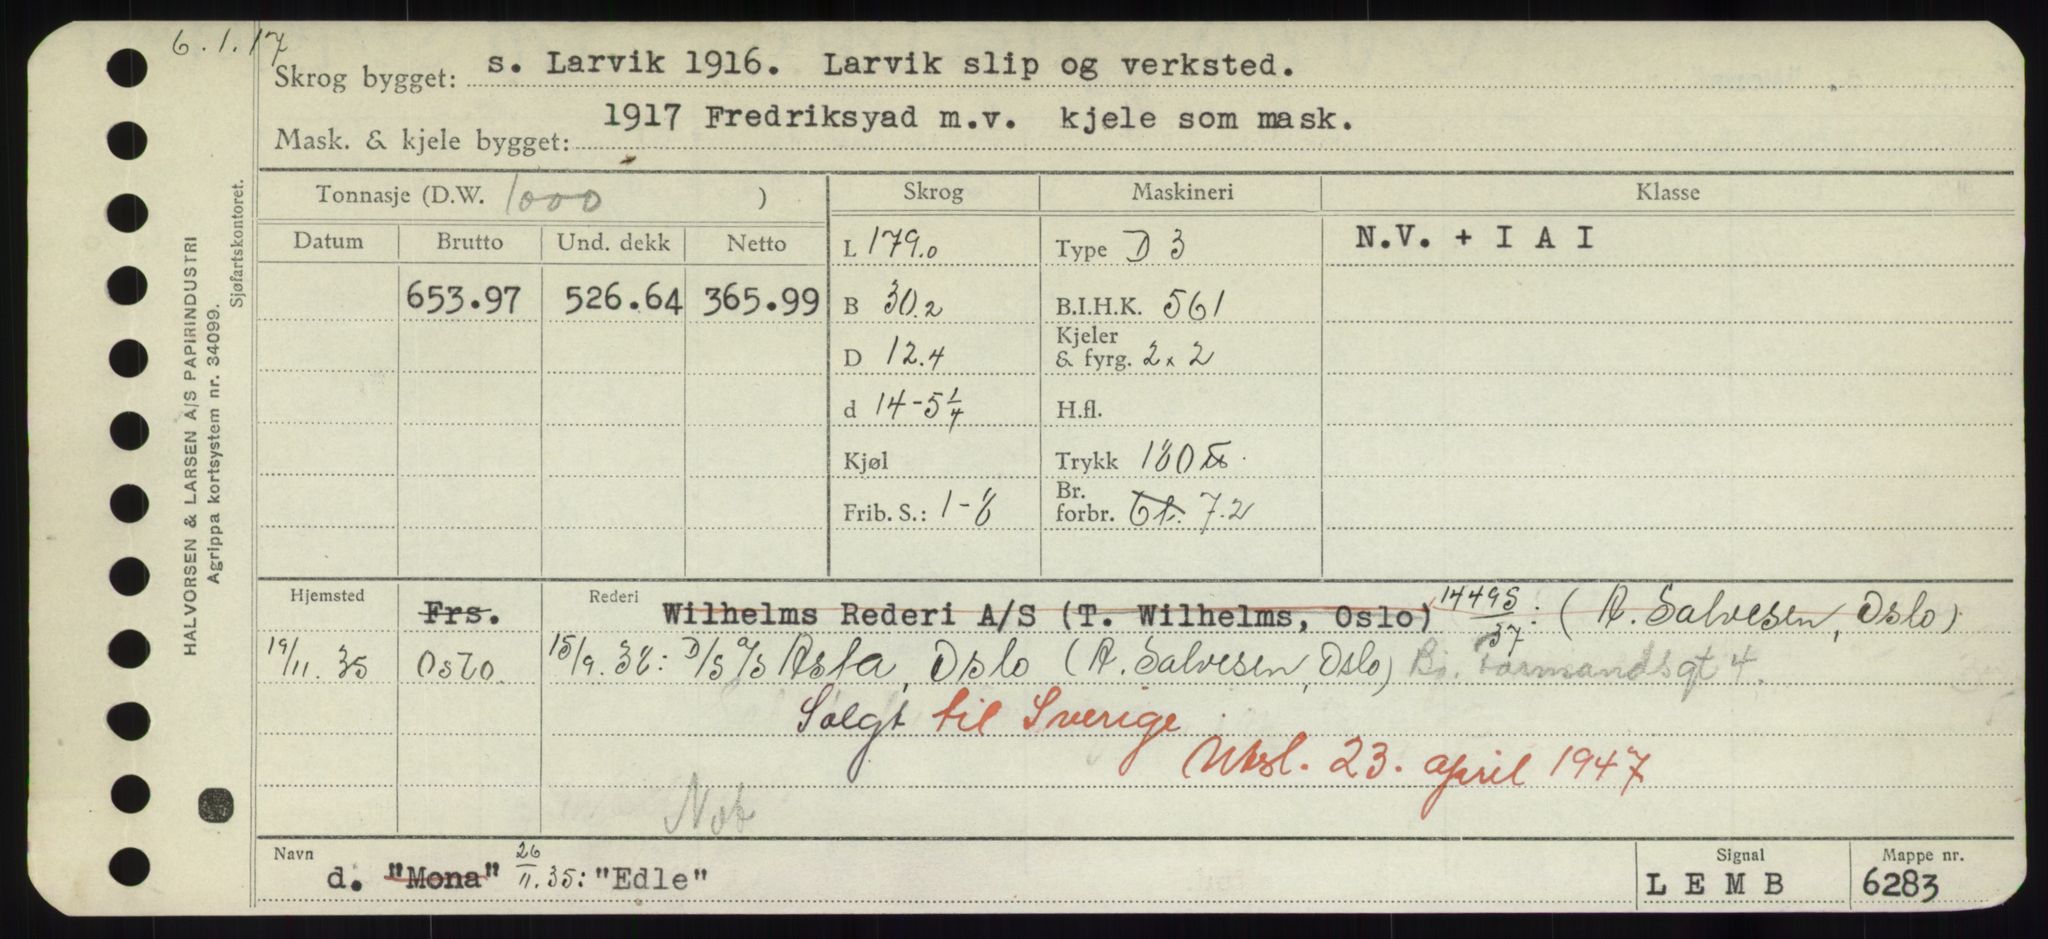 6.1.17
Skrog bygget: s. Larvik 1916. Larvik slip og verksted.
Mask. & kjele bygget: 1917 Fredriksyad m.v. kjele som mask.
HALVORSEN & LARSEN A/S PAPIRINDUSTRI
Agrippa kortsystem nr. 34099.
Sjøfartskontoret.
Tonnasje (D.W. 1000 ) Skrog Maskineri Klasse
Datum Brutto Und. dekk Netto L 179.0 Type D 3 N.V. + I A I
653.97 526.64 365.99 B 30.2 B.I.H.K. 561
D 12.4 Kjeler & fyrg. 2 x 2
d 14-5 1/4 H.fl.
Kjøl Trykk 180
Frib. S.: 1-8 Br. forbr. 6t. 7.2
Hjemsted Frs. Rederi Wilhelms Rederi A/S (T. Wilhelms, Oslo) 14495/37: (A. Salvesen, Oslo)
19/11.35 Oslo. 15/9.38: D/S A/S Asta, Oslo (A. Salvesen, Oslo) Bj. Farmandsgt 4.
Solgt til Sverige
Utsl. 23. april 1947
Not
Navn d. "Mona" 26/11.35: "Edle" Signal L E M B Mappe nr. 6283